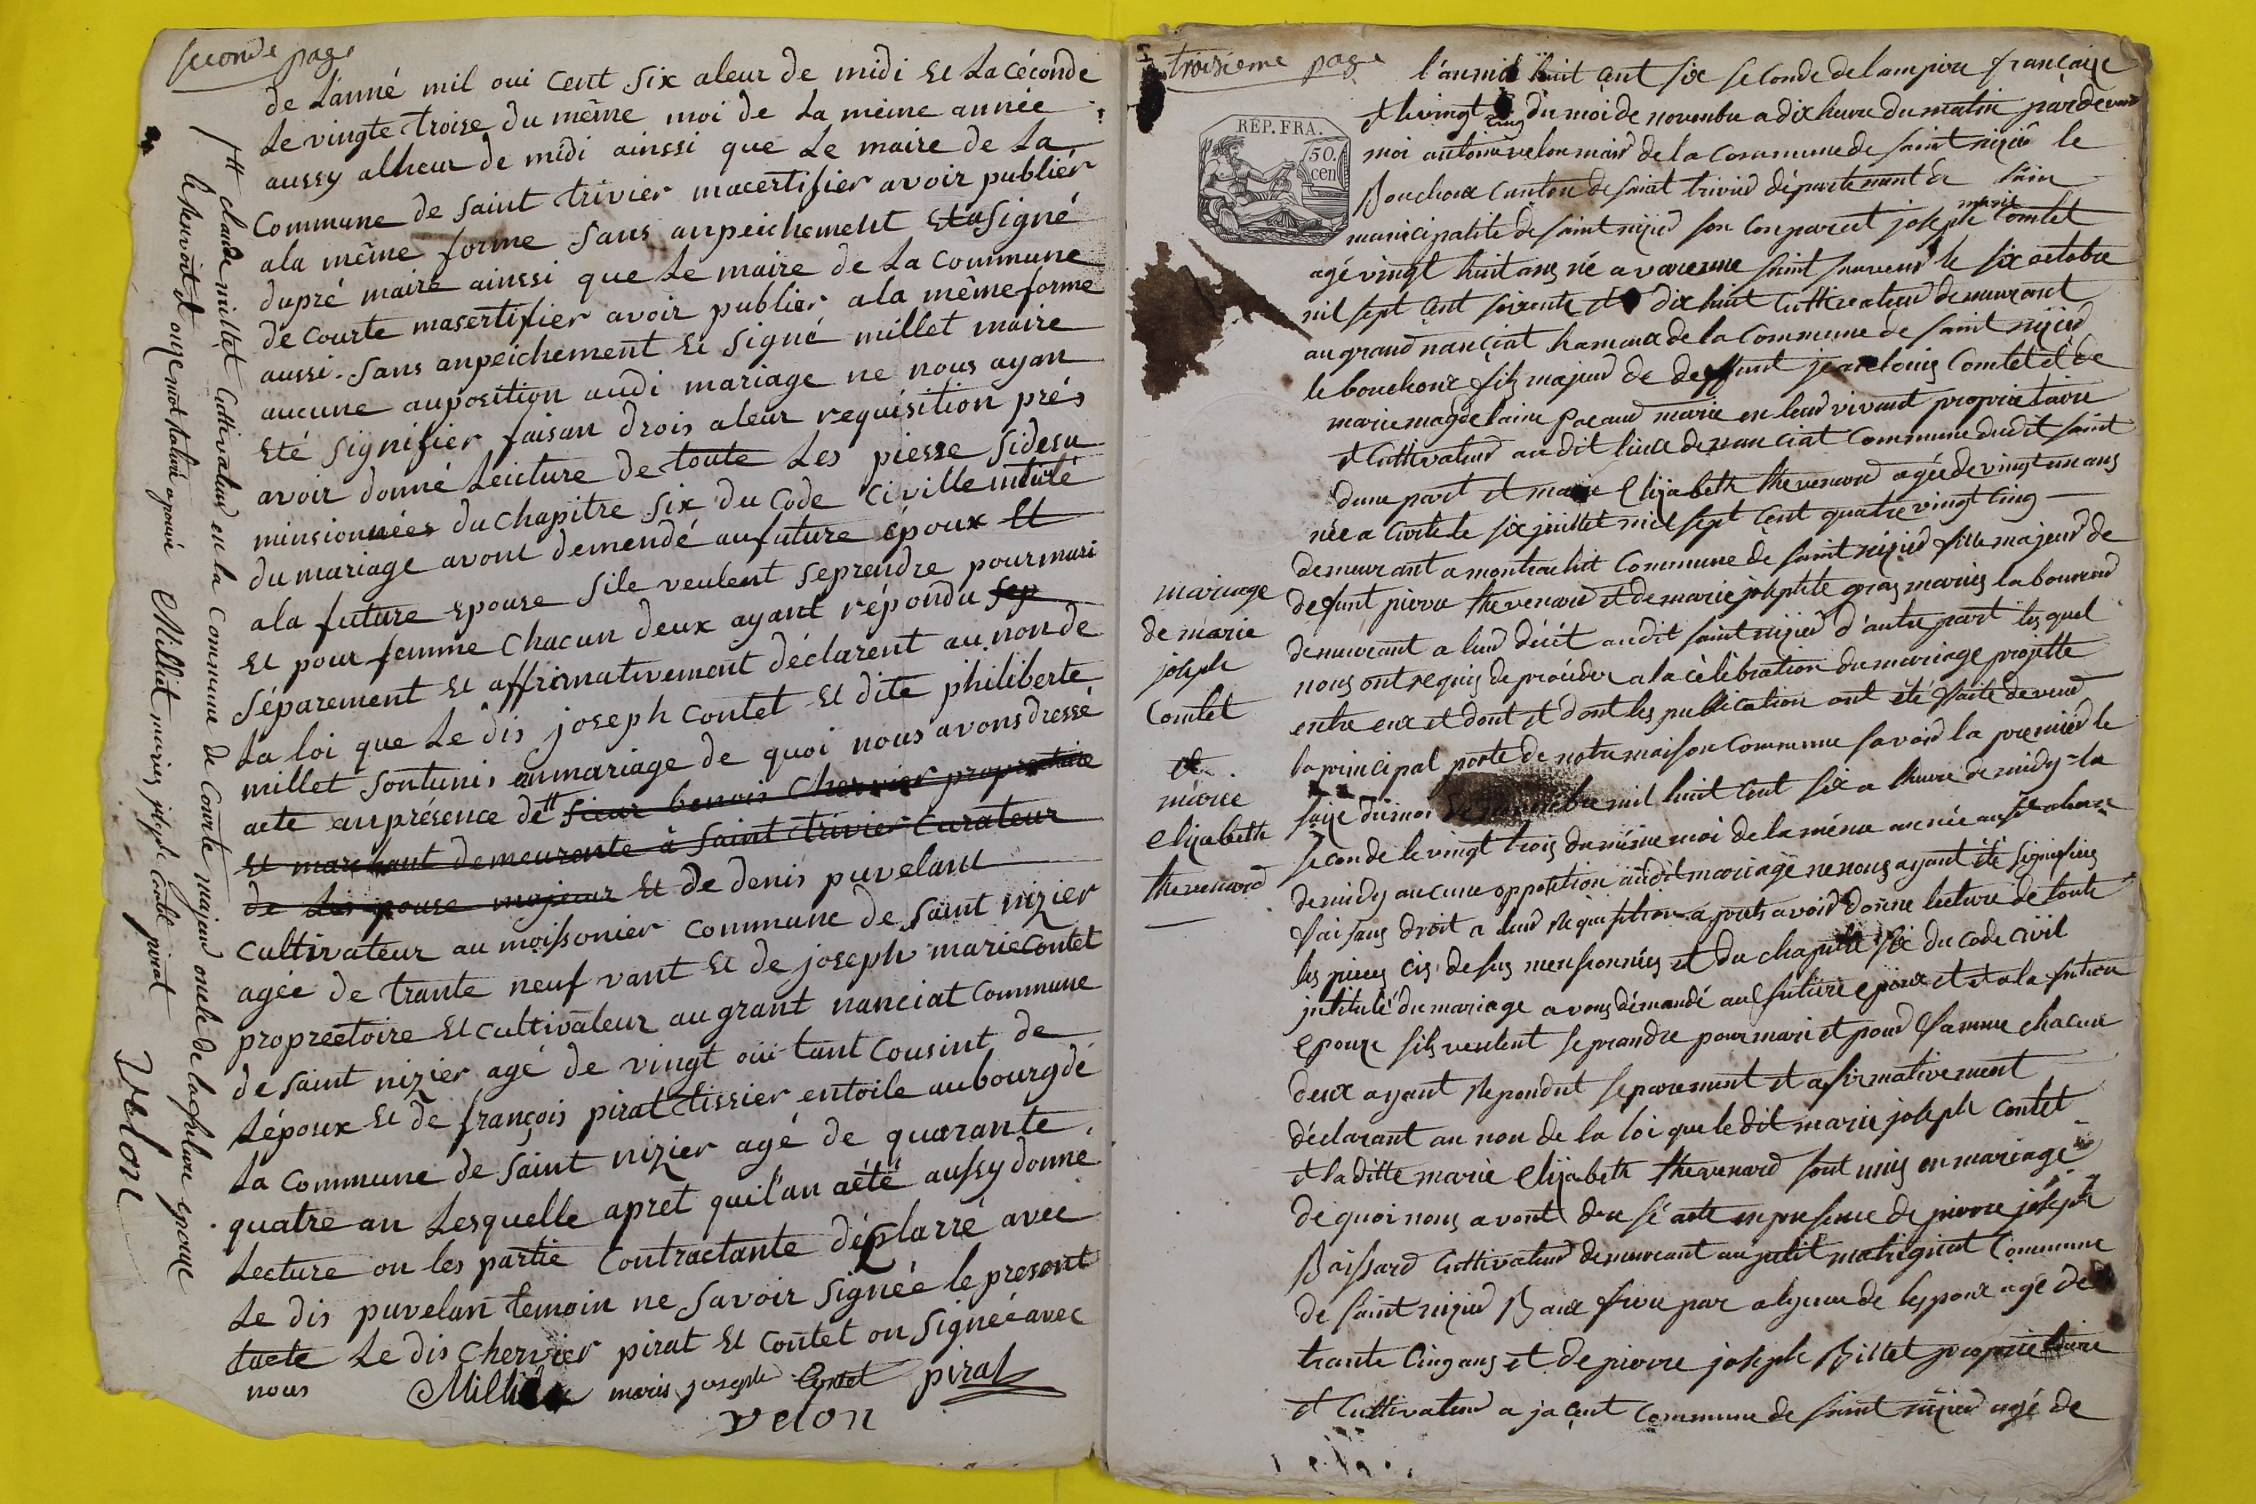 seconde page
de Lànné mil oui cent six aleur de midi Et La céconde
Le vingte troise du même moi de La meine année
aussy alheur de midi ainssi que Le maire de La
Commune de saint trivier macertifier avoir publiér
ala même forme sans anpeichement Et a Signé
dupré maire ainssi que Le maire de La Commune
de courte masertifier avoir publier ala même forme
aussi. sans anpeichement Et Signé millet maire
aucune auposition audi mariage ne nous ayan
Eté Signifier faisan drois aleur requisition prés
avoir donné Leicture de toute Les piesse sidesu
minsionnées du chapitre six du Code Civille intulé
du mariage avont demendé aufuture époux Et
ala future epouse sile veulent seprendre pour mari
Et pour femme Chacun deux ayant répondu sep
séparement Et affrimativement déclarent au nom de
La loi que Le dis joseph Contet Et dite philiberte
millet sontunis anmariage de quoi nous avons dressé
acte anprésence de tt sieur benois Chervier propriétaire
Et marchant demeurente à saint trivier Curateur
de Les pouse majeur Et de denis puvelant
cultivateur au moissonier commune de saint nizier
agée de trante neuf vant Et de joseph marie contet
proprectoire Et cultivateur au grant nanciat commune
de saint nizier agé de vingt oui tant cousint de
Lépoux Et de françois pirat tissier entoile au bourg de
La commune de saint nizier agé de quarante
quatre an Lesquelle apret quil'an aété aussy donné
Lecture on les partie Contractante déplarré avec
Le dis puvelan temoin ne savoir signéé le present
tacte Le dis Chervier pirat Et contet on signéé avec
nous
Millet maris joseph Contet pirat
velon
tt claude millet Cuttivateur en la Commune de Courte majeur oncle de la future epouse
Millet maries joseph Contet pirat
velon
troisième page
REP. FRA.
50.
cen
l'an mil huit cent six seconde de lampire française
et le vingt cinq du moi de novembre a dix heure du matin pardevant
moi antoine velon maire de la commune de saint nizier le
Bouchoux Canton de saint trivier département de l'ain
municipalité de saint nizier son comparut joseph marie Comtet
agé vingt huit ans né a varenne saint sauveur le six octobre
mil sept cent soixante et dix huit Cuttivateur demeurant
au grand nanciat hameaux de la Commune de saint nizier
le bouchoux fils majeur de deffunt jean louis Comtet et de
marie magdelaine pacaud marie en leur vivant proprietaire
et Cuttivateur au dit lieux de nanciat commune dudit saint
dune part et marie Elizabeth thevenard agée de vingt un ans
née a Curte le six juillet mil sept cent quatre vingt cinq
demeurant a montrachit Commune de saint nizier fille majeur de
defunt pierre thevenard et de marie josephte gras mariés laboureur
demeurant a leur décét audit saint nizier d'autre part les quel
nous ont requis de procéder a la célébration du mariage projette
entre eux et dont et dont les publication ont été faite devent
la principal porte de notre maison commune savoir la premier le
saize du moi de novembre mil huit cent six a heure de midy - la
seconde le vingt trois du même moi de la même année ausi a heure
de midy aucune opposition au dit mariage ne nous ayant été signifiés
faisans droit a leur réquisition apret avoir donne lecture de toute
les pieces cis desus mensionnées et du chapitre six du code civil
intitulé du mariage avons démandé au future epoux et et a la future
epouze sils veulent se prandre pour mari et pour famme chacun
deux ayant repondut separement et afirmativement
déclarant au non de la loi que le dit marie joseph Contet
et la ditte marie Elizabeth thevenard sont unis en mariage
de quoi nous avont dressé acte en presence de pierre joseph
Baissard Cuttivateur demeurant au petit malignat Commune
de saint nizier Baux frere par aliance de lespoux agé de
trante Cinq ans et de pierre joseph Billet proprietaire
et Cuttivateur a jacent commune de saint nizier agé de
mariage
de marie
joseph
Comtet
et
marie
elizabeth
thevenard